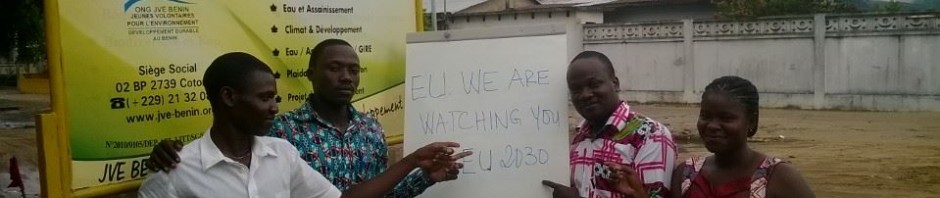 ONG JVE BENIN
JEUNES VOLONTAIRES
POUR L'ENVIRONNEMENT
DÉVELOPPEMENT DURABLE
AU BENIN
Siège Social
02 BP 2739 Coto
(+229) 21 32 0
www.jve-benin.
JVE BE
Eau et Assainissement
Climat & Développement
Eau / GIRE
Plaid
Projet
EU. WE ARE
WATCHING YOU
EU 2030